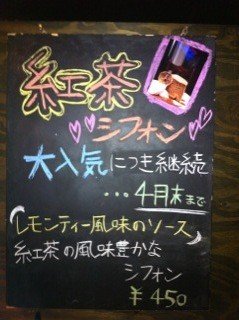 紅茶
シフォン
大人気につき継続
...4月末まで
レモンティー風味のソース
紅茶の風味豊かな
シフォン
¥450